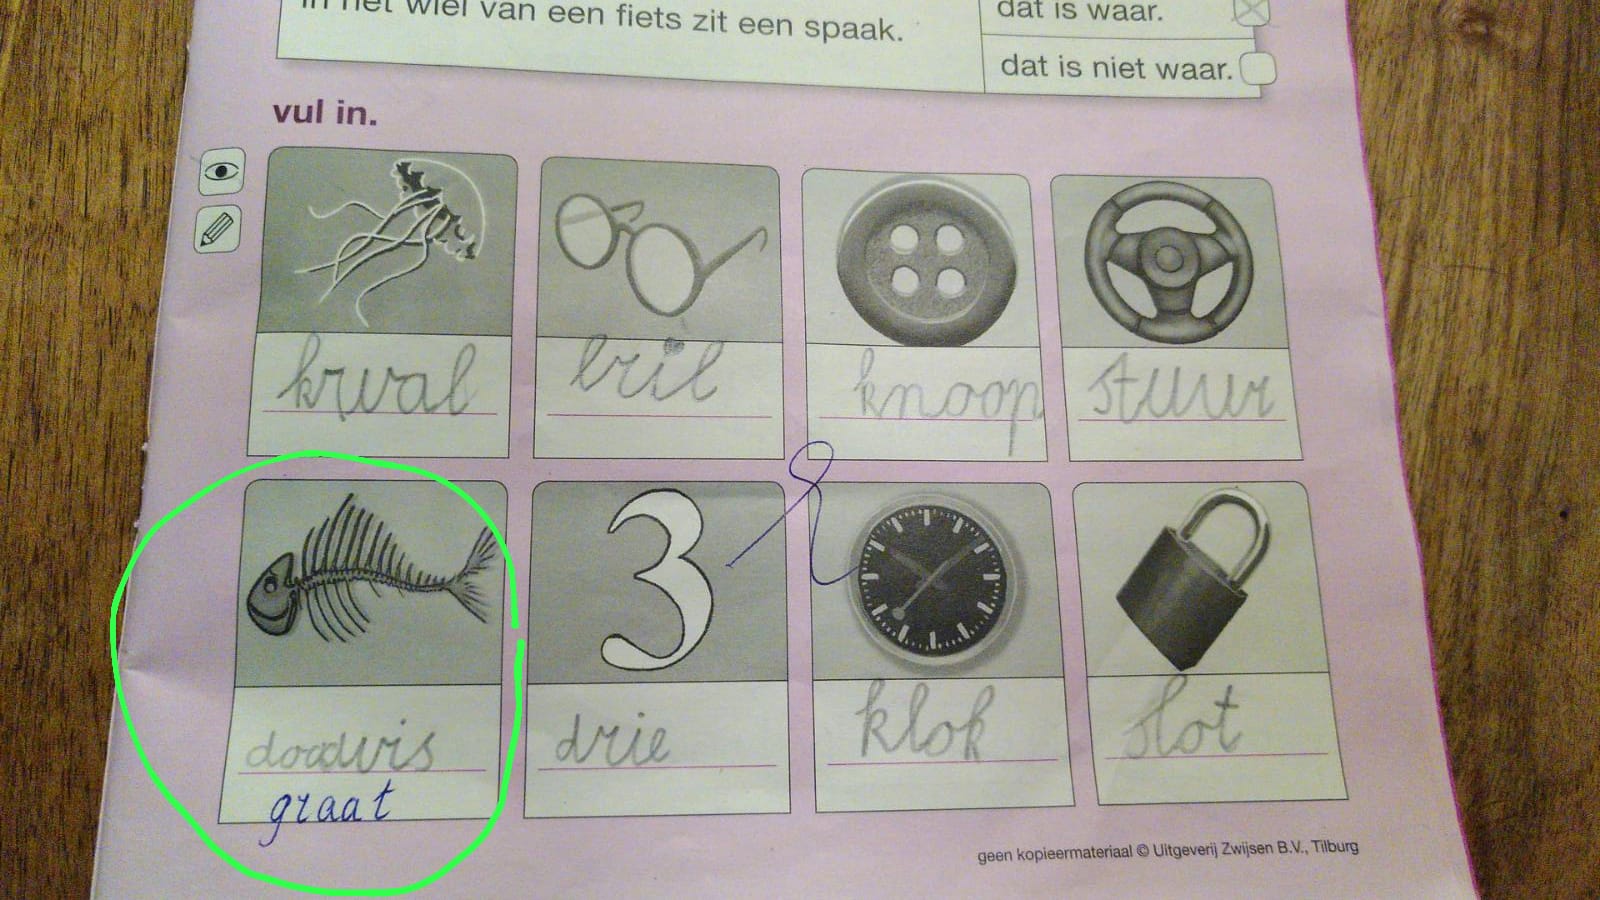 in het wiel van een fiets zit een spaak.
dat is waar.
dat is niet waar.
vul in.
kwal
bril
knoop
stuur
3
doodvis
graat
drie
klok
slot
geen kopieermateriaal © Uitgeverij Zwijsen B.V., Tilburg